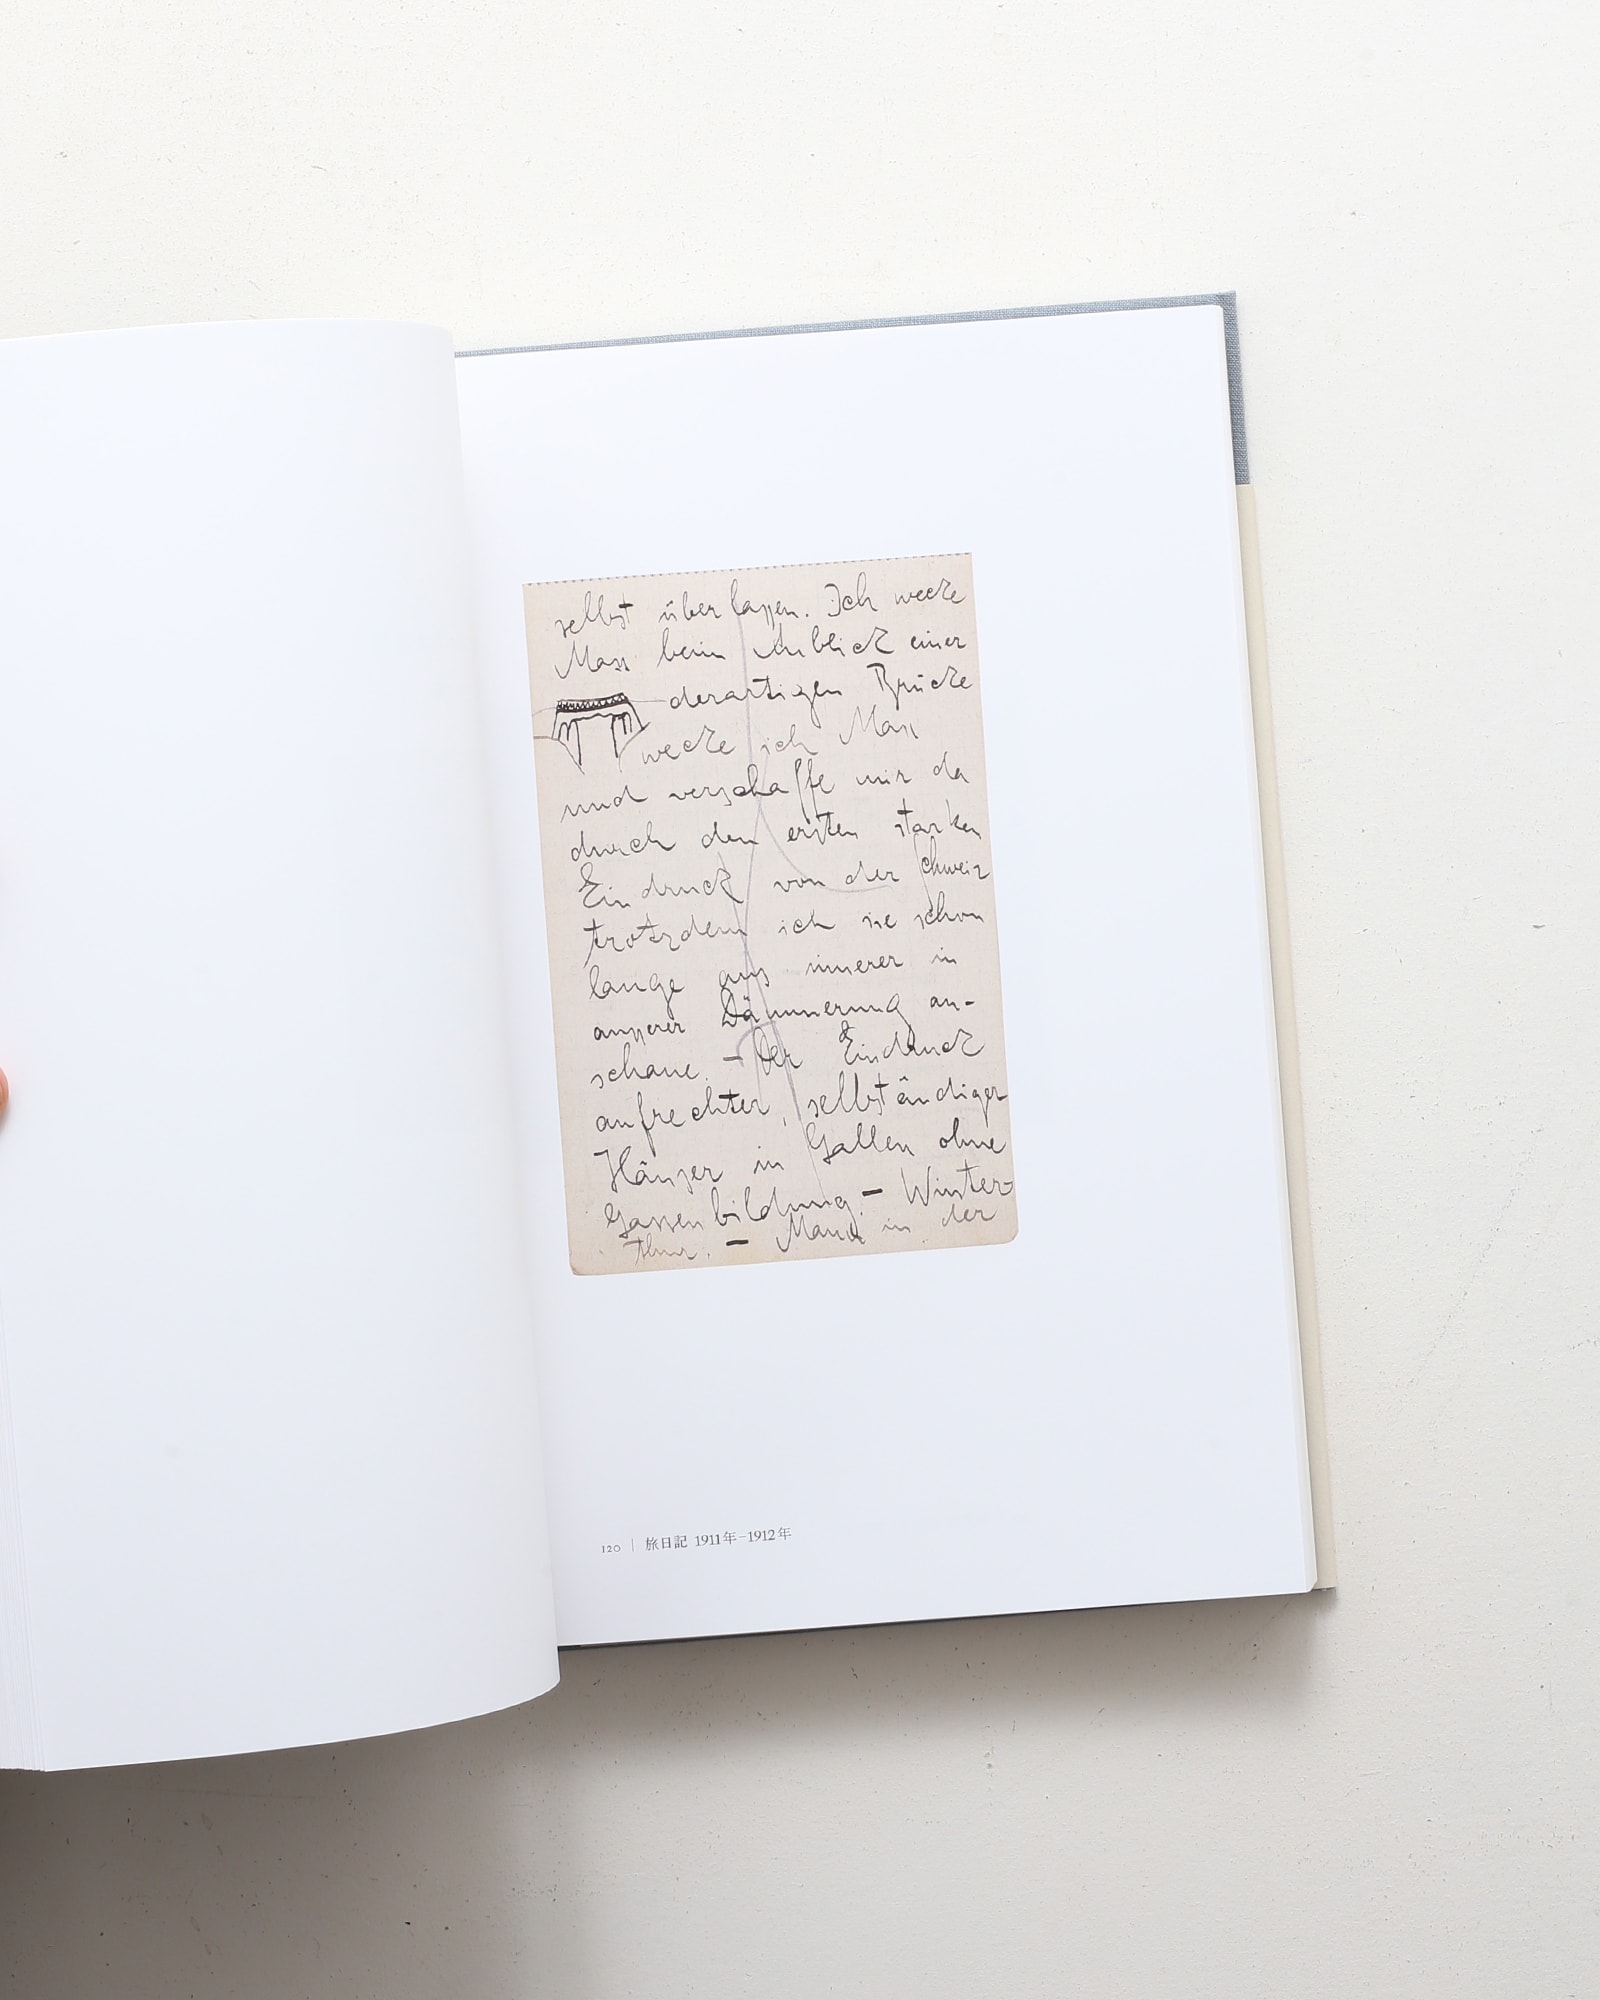 selbst überlassen. Ich wecke
Max beim Anblick einer
derartigen Brücke
wecke ich Max
und verschaffe mir da
durch den ersten starken
Eindruck von der Schweiz
trotzdem ich sie schon
lange aus innerer in
äusserer Dämmerung an-
schaue. – Der Eindruck
aufrechter, selbständiger
Häuser in Gallen ohne
Gassenbildung. – Winter-
thur. – Mann in der
120 | 旅日記 1911年–1912年